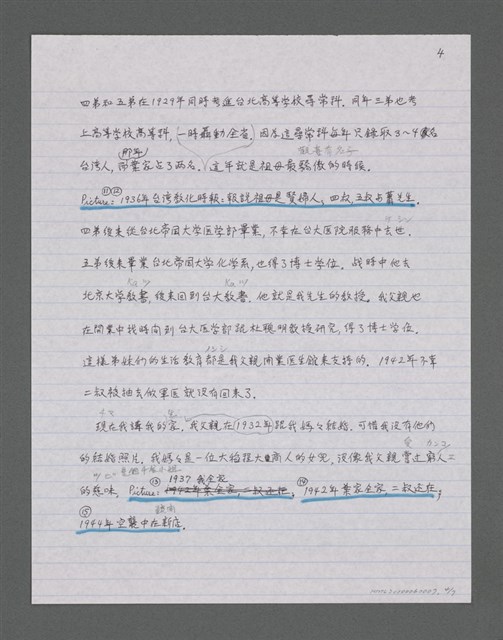 4.
四弟和五弟在1929年同時考進台北高等学校尋常科. 同年三弟也考
上高等学校高等科, 一時轟動全省, 因為這尋常科每年只錄取3~4名
台湾人, 而葉家占了兩名, 這年就是祖母最驕傲的時候.
那年
⑪⑫
Picture: 1936年台湾教化時報: 報説祖母是賢婦人, 四叔, 五叔占第先生.
四弟後来從台北帝国大学医学部畢業, 不幸在台大医院服務中去世.
五弟後来畢業台北帝国大学化学系, 也得了博士学位. 战時中他去
北京大学教書, 後来回到台大教書, 他就是我先生的教授. 我父親也
在開業中找時間到台大医学部跟杜聰明教授研究, 得了博士学位.
這樣弟妹们的生活教育都是我父親開業医生錢来支持的. 1942年不幸
二叔被抽去做軍医就没有回来了.
現在我講我的家, 我父親在1932年跟我媽々結婚. 可惜我没有他们
的結婚照片, 我媽々是一位大稻埕大商人的女児, 沒像我父親嘗过窮人
的慈味.
⑬ 1937 我全家
Picture: 1942年葉全家, 二叔还在,
⑭
1942年葉家全家, 二叔还在,
⑮
1944年空襲中在新店.